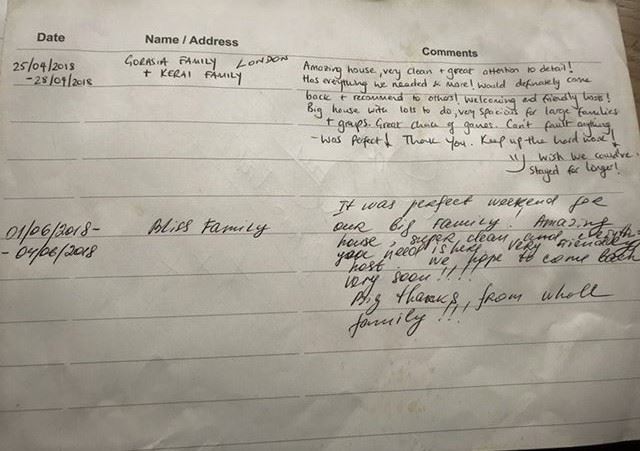 Date Name / Address Comments
25/04/2018 GORASIA FAMILY LONDON
-28/04/2018 + KERAI FAMILY
Amazing house, very clean + great attention to detail!
Has everything we needed & more! Would definately come
back + recommend to others! Welcoming and friendly hosts!
Big house with lots to do, very spacious for large families
+ groups. Great choice of games. Can't fault anything
- was perfect! Thank you. Keep up the hard work!
Wish we could've
stayed for longer!
01/06/2018-
- 04/06/2018
Bliss Family
It was perfect weekend for
our big family. Amazing
house, super clean and
you need is here, very friendly
host. We hope to come back
very soon!!!!!
Big thanks, from whole
family!!!